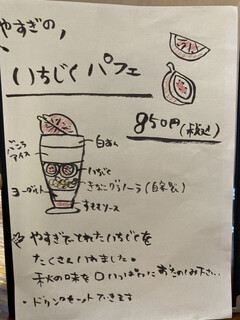 やすぎの
いちじくパフェ
850円(税込)
白あん
バニラ
アイス
いちじく
きなこグラノーラ(自家製)
ヨーグルト
すももソース
やすぎでとれたいちじくを
たくさんいれました。
秋の味を口いっぱいにおたのしみ下さい…
・ドリンクセットできます